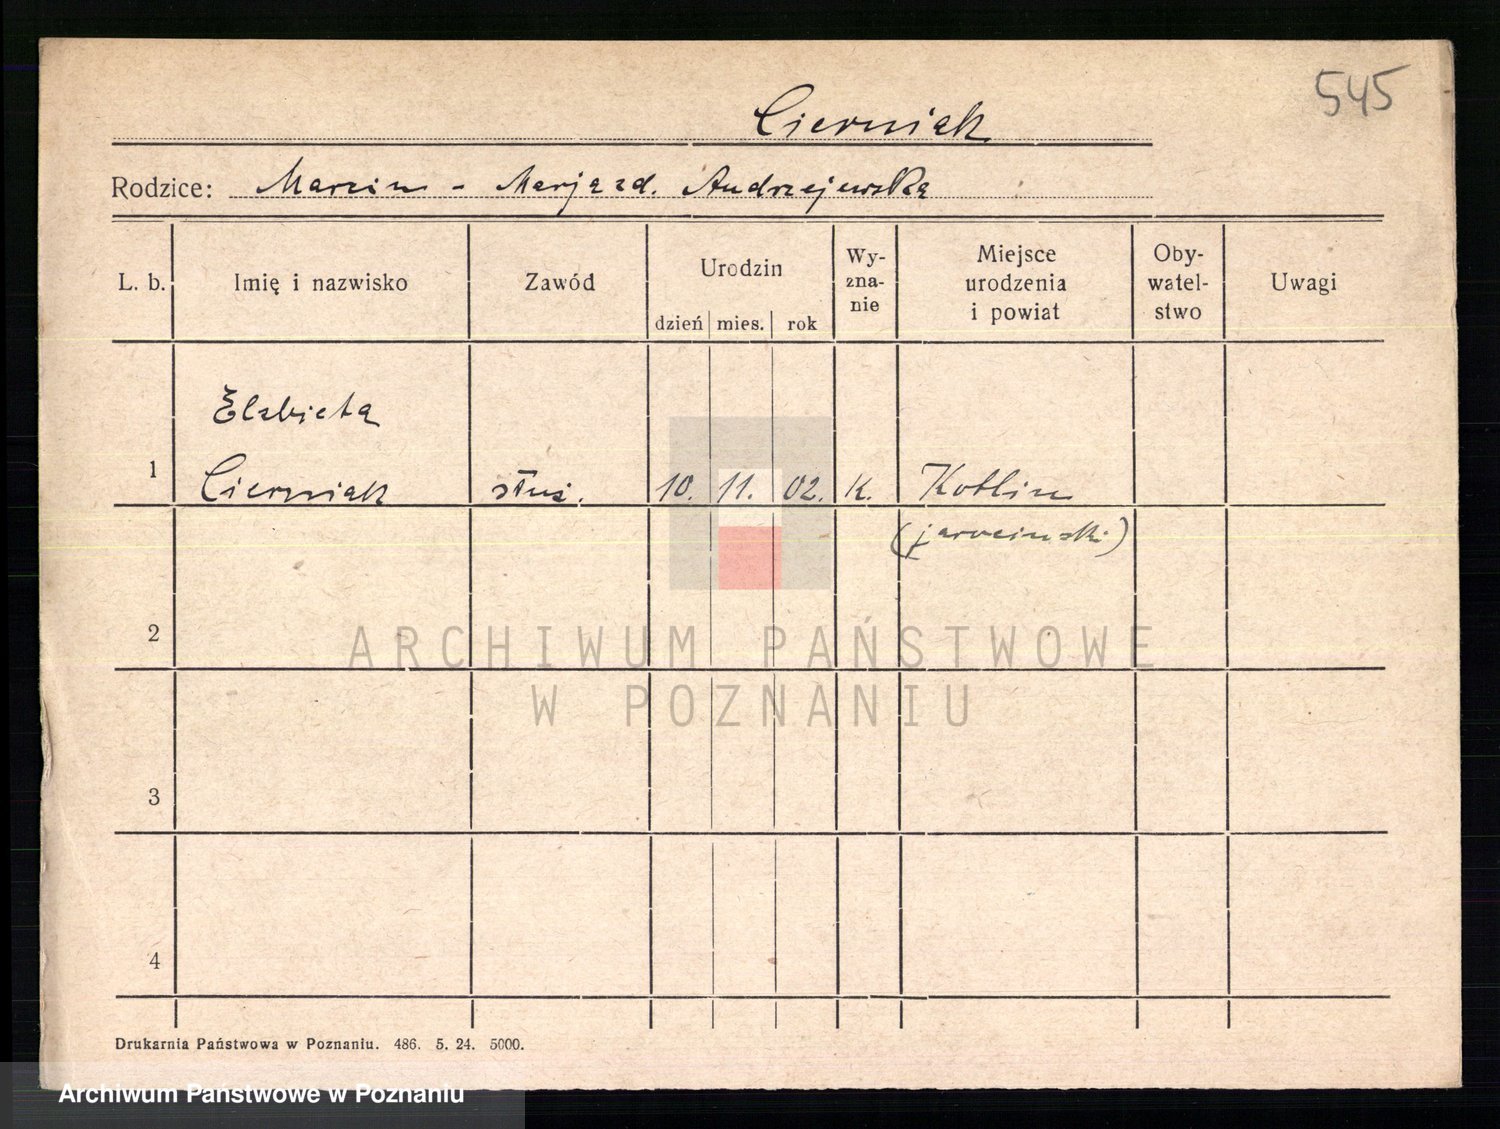 545
Cierniak
Rodzice: Marcin - Marja zd. Andrzejewska
L. b. Imię i nazwisko Zawód Urodzin dzień mies. rok Wy-zna-nie Miejsce urodzenia i powiat Oby-watel-stwo Uwagi
Elzbieta
1 Cierniak służ. 10. 11. 02. K. Kotlin
(jarociński)
2
ARCHIWUM PAŃSTWOWE
W POZNANIU
3
4
Drukarnia Państwowa w Poznaniu. 486. 5. 24. 5000.
Archiwum Państwowe w Poznaniu